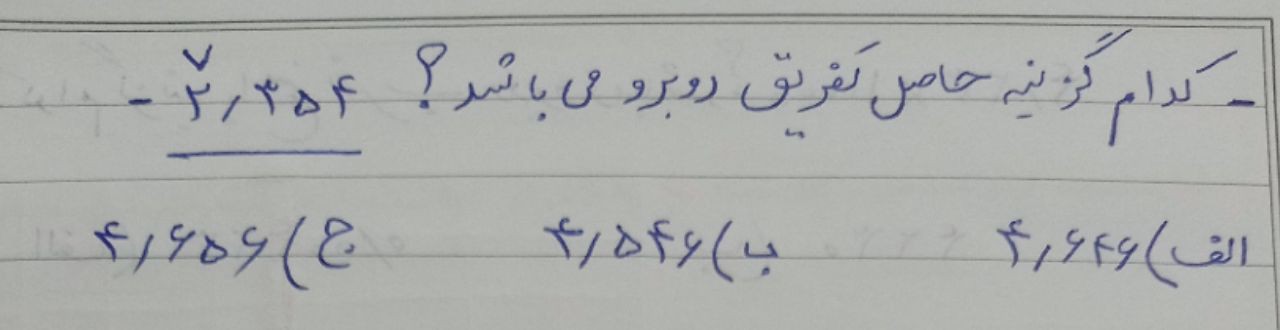 - کدام گزینه حاصل تفریق روبرو می باشد؟ ۷
- ۲٫۳۵۴
الف) ۴٫۶۴۶ ب) ۴٫۵۴۶ ج) ۴٫۶۵۶